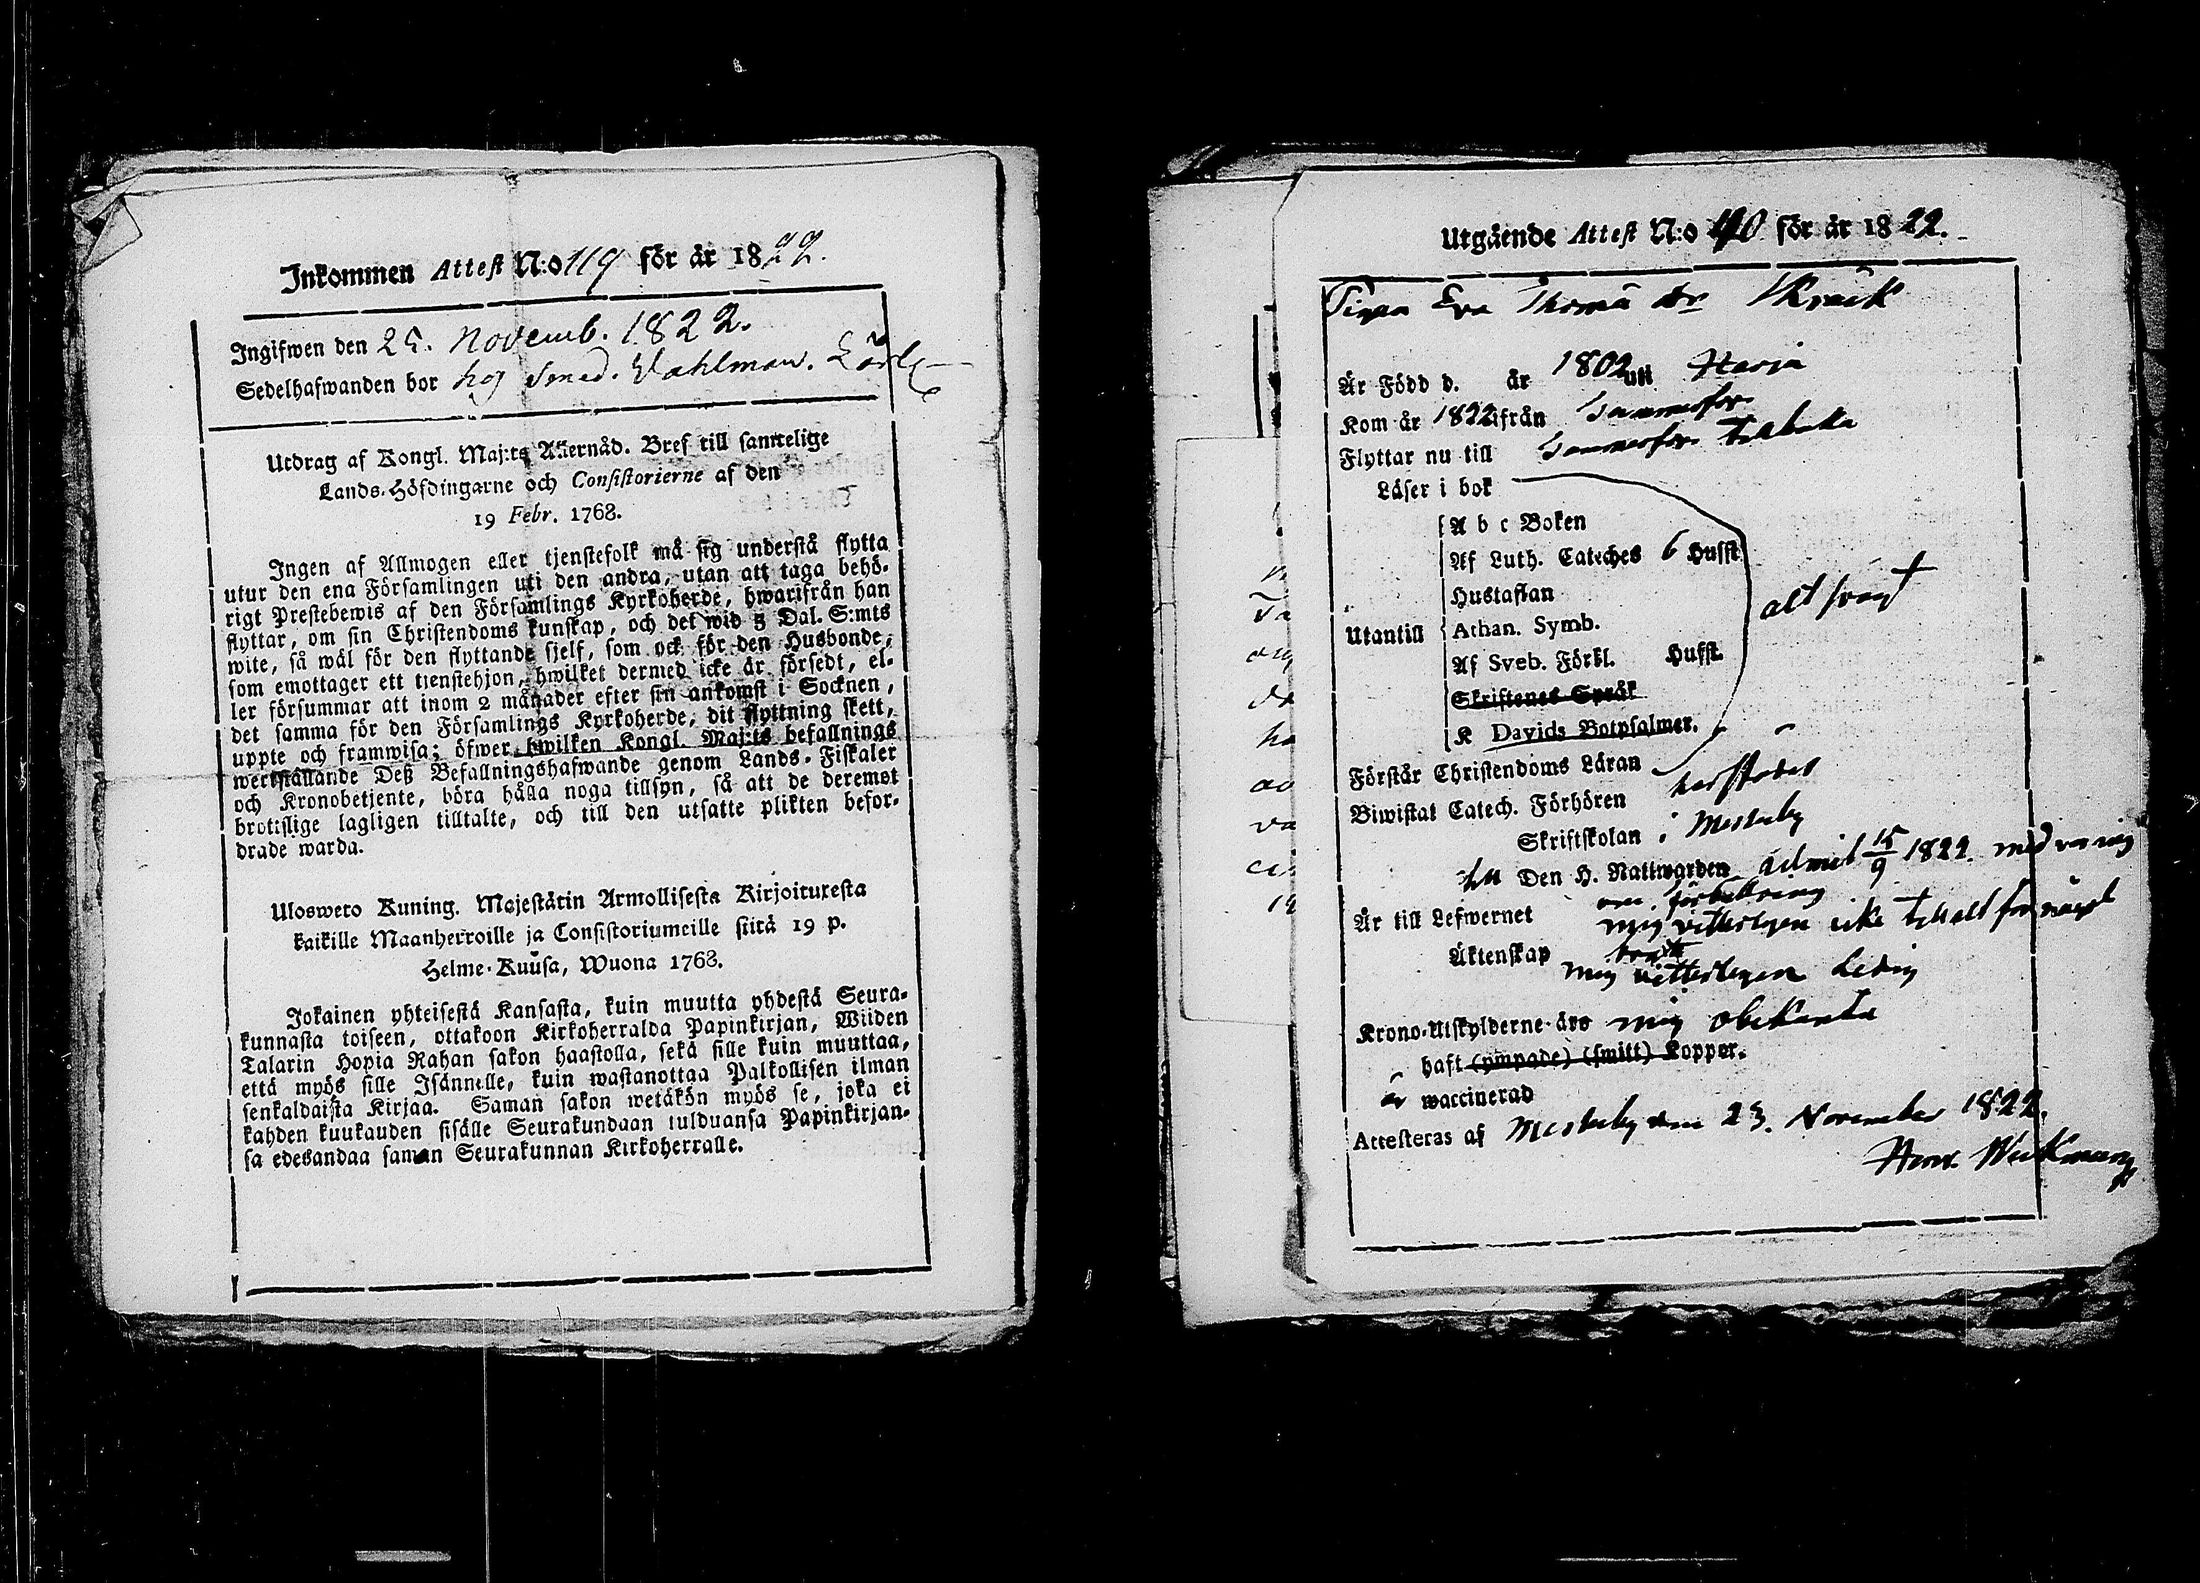 Inkommen Attest N:o 119 för år 1822.
Ingifwen den 25. Novemb. 1822.
Sedelhafwanden bor hoj Smed. Wahlman.
Utdrag af Kongl. Maj:ts Allernåd. Bref till samtelige
Lands-Höfdingarne och Consistorierne af den
19 Febr. 1768.
Ingen af Allmogen eller tjenstefolk må sig understå flytta
utur den ena Församlingen uti den andra, utan att taga behö-
rigt Prestebewis af den Församlings Kyrkoherde, hwarifrån han
flyttar, om sin Christendoms kunskap, och det wid 5 Dal. S:mts
wite, så wäl för den flyttande sjelf, som ock för den Husbonde,
som emottager ett tjenstehjon, hwilket dermed icke är försedt, el-
ler försummar att inom 2 månader efter sin ankomst i Socknen,
det samma för den Församlings Kyrkoherde, dit flyttning skett,
uppte och framwisa; öfwer hwilken Kongl. Maj:ts befallnings
werkställande Deß Befallningshafwande genom Lands-Fiskaler
och Kronobetjente, böra hålla noga tillsyn, så att de deremot
brottslige lagligen tilltalte, och till den utsatte plikten befor-
drade warda.
Uloswero Kuning. Majestätin Armollisesta Kirjoituxesta
kaikille Maanherroille ja Consistoriumeille siitä 19 p.
Helme-Kuusa, Wuona 1768.
Jokainen yhteisestä Kansasta, kuin muutta yhdestä Seura-
kunnasta toiseen, ottakoon Kirkoherralda Papinkirjan, Wiiden
Talarin Hopia Rahan sakon haastolla, sekä sille kuin muuttaa,
että myös sille Isännelle, kuin wastanottaa Palkollisen ilman
senkaldaista Kirjaa. Saman sakon wetäkön myös se, joka ei
kahden kuukauden sisälle Seurakundaan tulduansa Papinkirjan-
sa edesandaa saman Seurakunnan Kirkoherralle.
Utgående Attest N:o 190 för år 1822.
Pigan Eva Thomä dr
Är Född d. år 1802 uti Harja
Kom år 1822 ifrån Gammelfor
Flyttar nu till Gammelfor tillbaka
Läser i bok
A b c Boken
Af Luth. Cateches 6 Hufst
Hustaflan
Utantill Athan. Symb.
Af Sveb. Förkl. Hufst.
Skriftenes Språk
K Davids Botpsalmer.
alt svagt
Förstår Christendoms Läran
Biwistat Catech. Förhören härstädes
Skriftskolan i Mesterby
till Den H. Nattwarden admit 15/9 1822. med varning
Är till Lefwernet om förbättring
mig vitterligen icke tilltalt för något
brott
Äktenskap mig vitterligen ledig
Krono-Utskylderne äro mig obekanta
haft (ympade) (smitt) Koppor.
är waccinerad
Attesteras af Mesterby den 23. November 1822.
Henr. Wickman